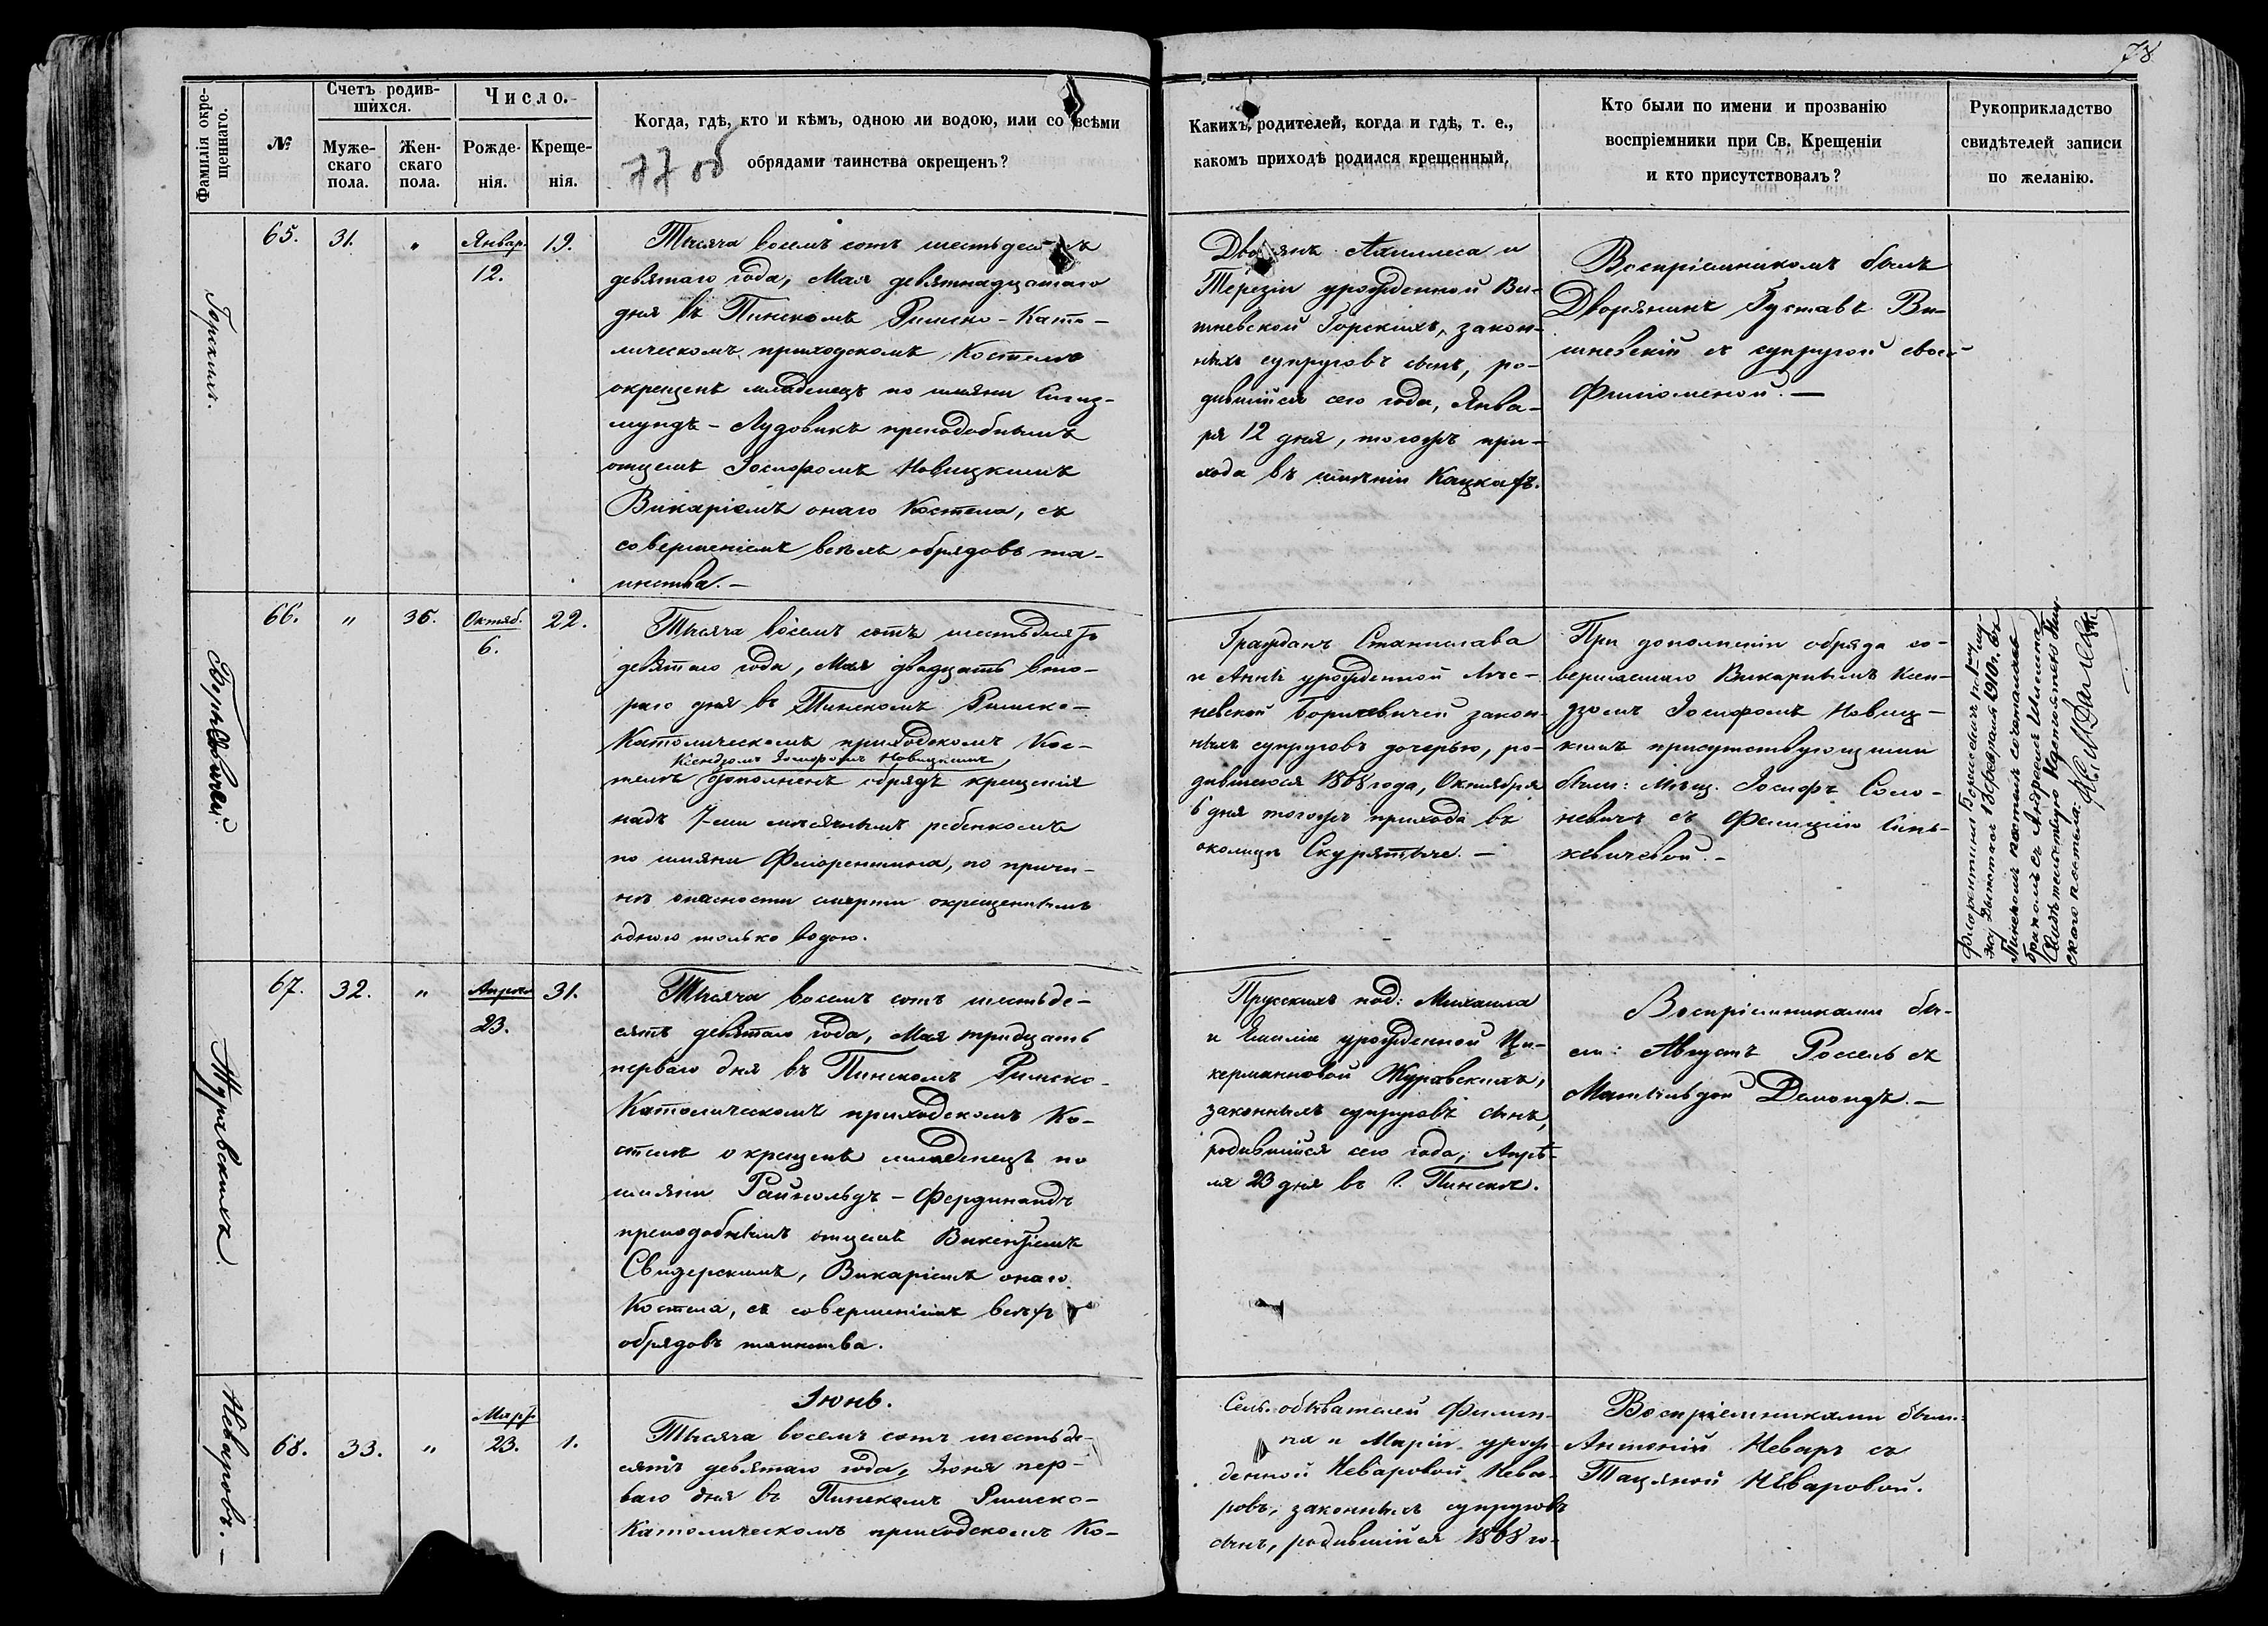 78
Фамилія окре-
щеннаго.
№
Счетъ родив-
шихся.
Муже-
скаго
пола.
Жен-
скаго
пола.
Число.
Рожде-
нія.
Креще-
нія.
Когда, гдѣ, кто и кѣмъ, одною ли водою, или со всѣми
обрядами таинства окрещенъ?
77 об
Какихъ родителей, когда и гдѣ, т. е.,
какомъ приходѣ родился крещенный.
Кто были по имени и прозванію
воспріемники при Св. Крещеніи
и кто присутствовалъ?
Рукоприкладство
свидѣтелей записи
по желанію.
Горскихъ.
65.
31.
"
Январ.
12.
19.
Тысяча восемъ сотъ шестьдесятъ
девятаго года, Мая девятнадцатаго
дня въ Пинскомъ Римско-Като-
лическомъ приходскомъ Костелѣ
окрещенъ младенецъ по имяни Сигиз-
мундъ-Лудовикъ преподобнымъ
отцемъ Іосифомъ Новицкимъ
Викаріемъ онаго Костела, съ
совершеніемъ всѣхъ обрядовъ та-
инства.-
Дворянъ Ахиллеса и
Терезіи урожденной Ви-
шневской Горскихъ, закон-
ныхъ супруговъ сынъ, ро-
дившійся сего года, Янва-
ря 12 дня, тогожъ при-
хода въ имѣніи Кацкахъ.
Воспріемникомъ былъ
Дворянинъ Густавъ Ви-
шневскій съ супругой своей
Филоменой.-
66.
"
36.
Октяб.
6.
22.
Тысяча восемъ сотъ шестьдесятъ
девятаго года, Мая двадцать вто-
раго дня въ Пинскомъ Римско-
Католическомъ приходскомъ Кос-
Ксендзомъ Іосифомъ Новицкимъ
телѣ дополненъ обрядъ крещенія
надъ 7-ми мѣсячнымъ ребенкомъ
по имяни Флорентина, по причи-
нѣ опасности смерти окрещеннымъ
одною только водою.
Гражданъ Станислава
и Анны урожденной Лис-
невской Боричевичей закон-
ныхъ супруговъ дочерью, ро-
дившеюся 1868 года, Октября
6 дня тогожъ прихода въ
околицѣ Скурятыче.-
При дополненіи обряда со-
вершеннаго Викарнымъ Ксен-
дзомъ Іосифомъ Новиц-
кимъ присутствующими
были: Мѣщ. Іосифъ Соло-
невичъ съ Фелиціею Синь-
кевичевой.-
Флорентина
1910 г. въ
Пинскомъ костелѣ сочеталась
бракомъ съ Андреемъ
скаго костела.
Журавскихъ.
67.
32.
"
Апрѣля
23.
31.
Тысяча восемъ сотъ шестьде-
сятъ девятаго года, Мая тридцать
перваго дня въ Пинскомъ Римско-
Католическомъ приходскомъ Ко-
стелѣ окрещенъ младенецъ по
имяни Райнольдъ-Фердинандъ
преподобнымъ отцемъ Викентіемъ
Свидерскимъ, Викаріемъ онаго
Костела, съ совершеніемъ всѣхъ
обрядовъ таинства.
Прусскихъ под: Михаила
и Емиліи урожденной Ци-
кермановой Журавскихъ,
законныхъ супруговъ сынъ,
родившійся сего года, Апрѣ-
ля 23 дня въ г. Пинскѣ.
Воспріемниками бы-
ли: Августъ Россель съ
Матыльдой Демондъ.-
Неваровъ.-
68.
33.
"
Март
23.
1.
Іюнь.
Тысяча восемъ сотъ шестьде-
сятъ девятаго года, Іюня пер-
ваго дня въ Пинскомъ Римско-
Католическомъ приходскомъ Ко-
Сель. обывателей Филип-
па и Маріи урож-
денной Неваровой Нева-
ровъ, законныхъ супруговъ
сынъ, родившійся 1868 го-
Воспріемниками были:
Антоній Неваръ съ
Тацяной Неваровой.